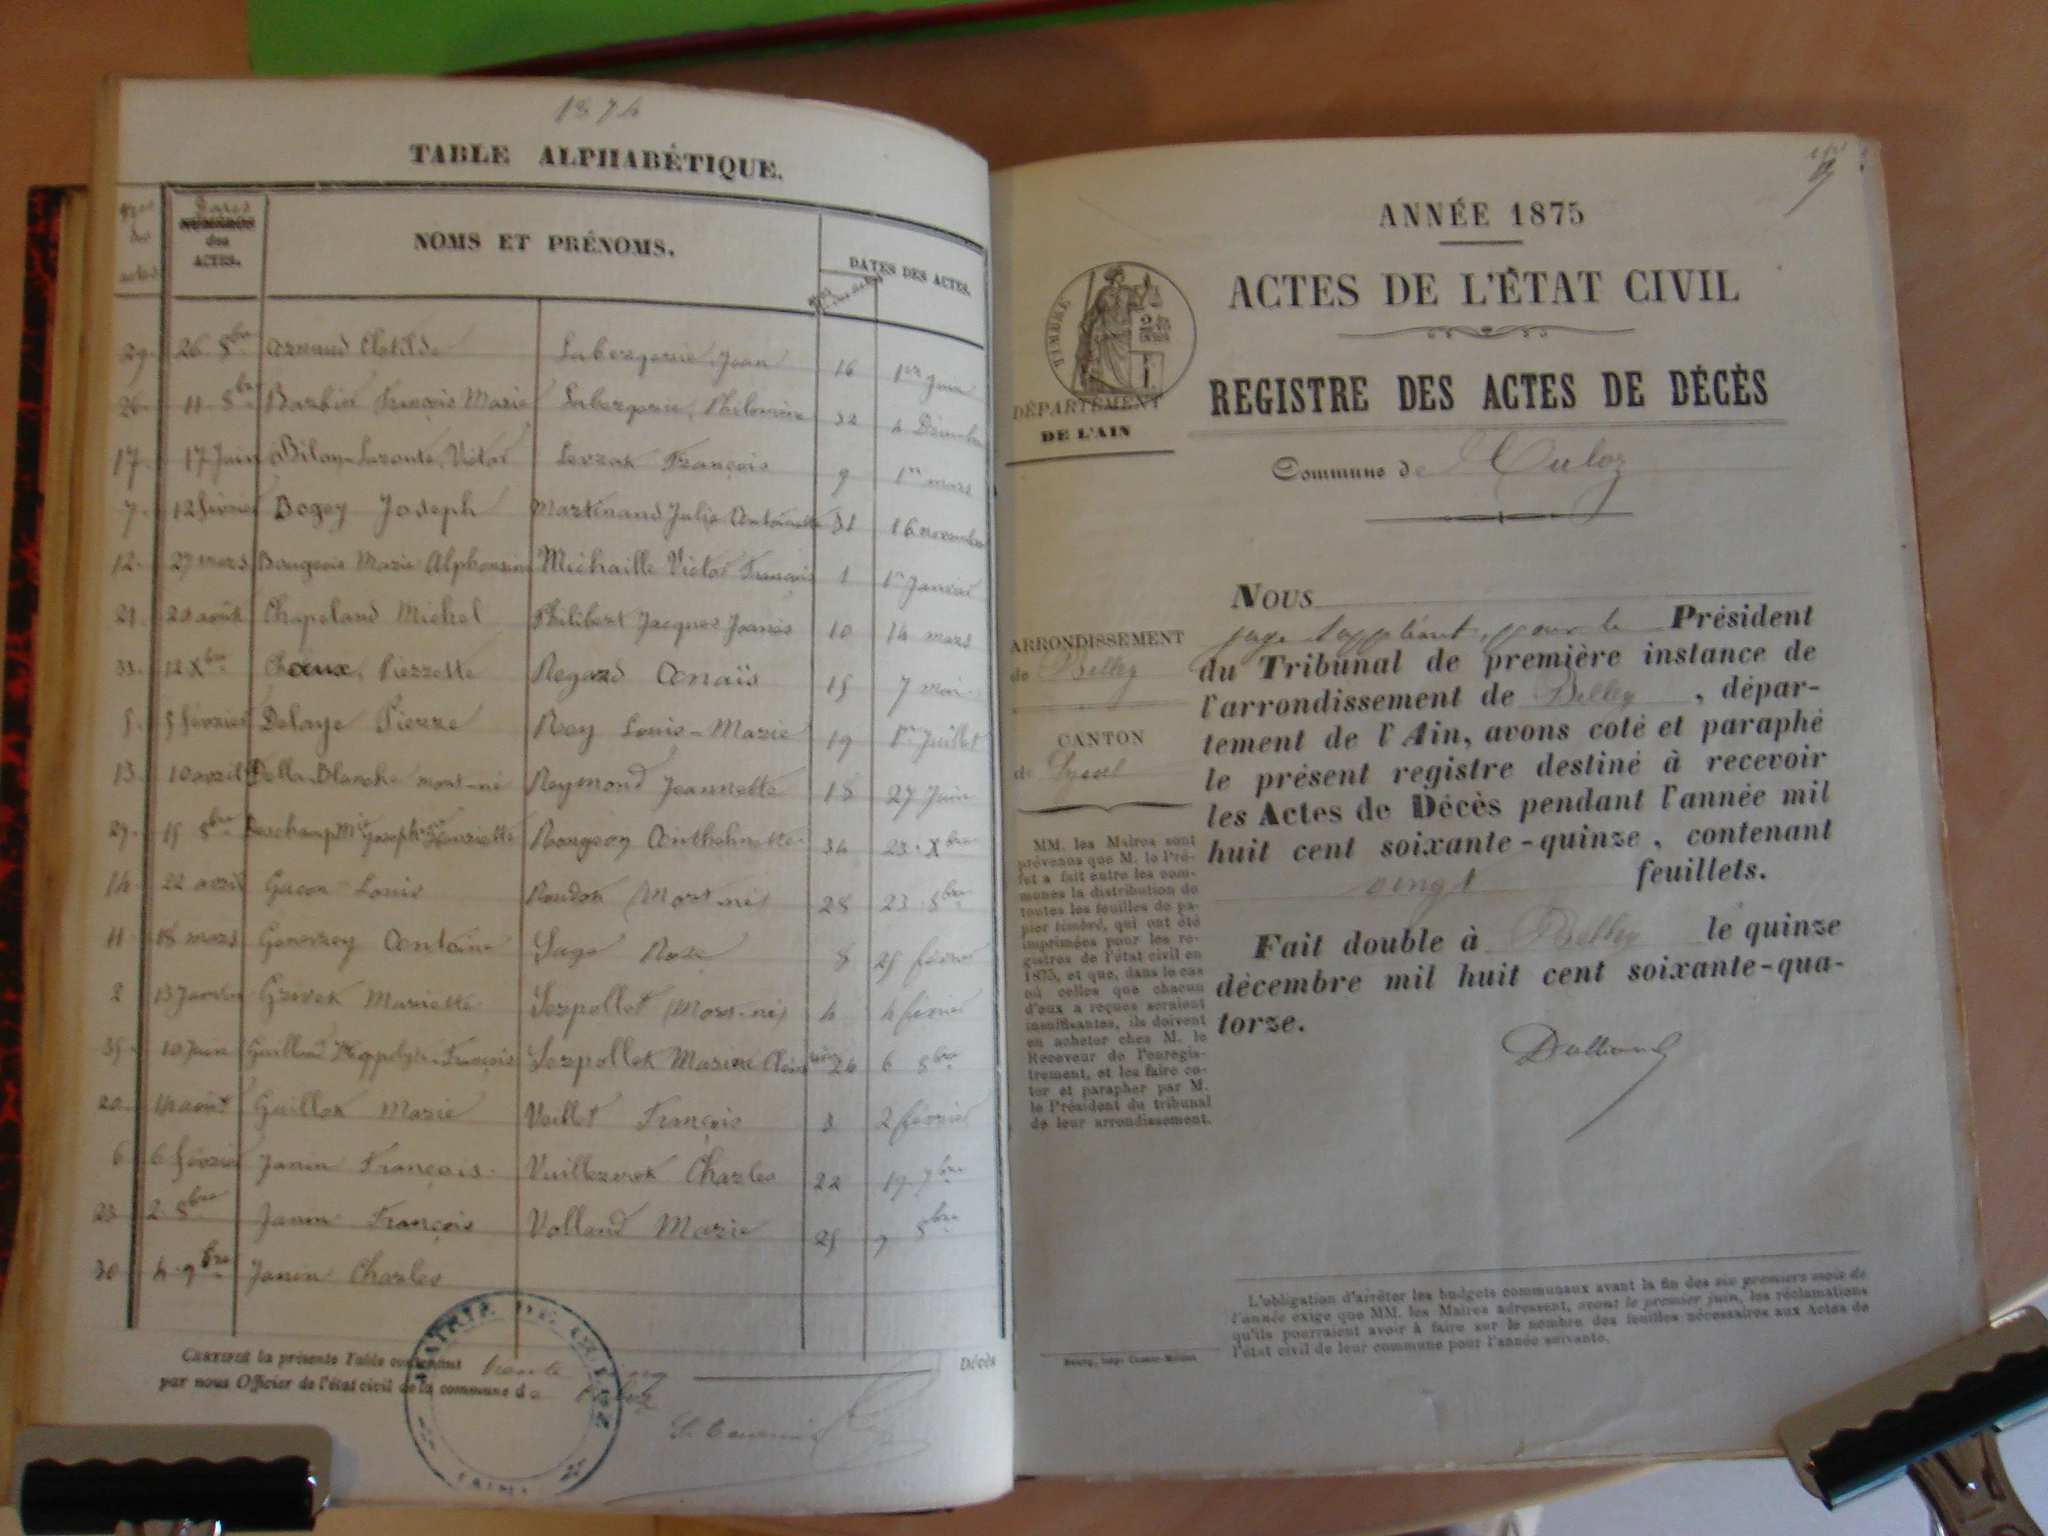 1874
TABLE ALPHABÉTIQUE.
Nos des actes
Dates
NUMÉROS
des
ACTES.
NOMS ET PRÉNOMS.
DATES DES ACTES.
29. 26 8bre Arnaud Clotilde Labergerie Jean 16 1er Juin
26. 11 8bre Barbier François Marie Labergerie Philomène 32 4 Décembre
17. 17 Juin Billon-Laroute Victor François 9 1er mars
7. 12 février Bogey Joseph Martinand Julie Antoinette 31 16 novembre
12. 27 mars Bourgeois Marie Alphonsine Michaille Victor François 1 1er Janvier
21. 20 août Chapeland Michel Philibert Jacques Joanès 10 14 mars
33. 12 Xbre Choeux, Pierrette Regard Anaïs 15 7 mai
5. 5 février Delaye Pierre Rey Louis-Marie 19 1er Juillet
13. 10 avril Della-Blanche mort-né Reymond Jeannette 18 27 Juin
27. 15 8bre Deschamp Mie Josephte Henriette Rougeon Anthelmette 34 23 Xbre
14. 22 avril Gacon Louis Roudot (Mort-né) 28 23 8bre
11 18 mars Genevrey Antoine Sage Rose 8 25 février
2 13 Janvier Grivet Mariette Serpollet (Mort-né) 4 4 février
35. 10 Juin Guilland Hyppolyte-François Serpollet Marie 24 6 8bre
20. 14 août Guillot Marie Vaillet François 3 2 février
6 6 février Janin François Vuillerot Charles 22 19 7bre
23 2 8bre Janin François Volland Marie 25 9 8bre
30 4 9bre Janin Charles
CERTIFIÉ la présente Table contenant trente Décès
par nous Officier de l'état civil de la commune de Culoz
MAIRIE DE CULOZ
(AIN)
ANNÉE 1875
ACTES DE L'ÉTAT CIVIL
TIMBRE
REGISTRE DES ACTES DE DÉCÈS
DÉPARTEMENT
DE L'AIN
Commune de Culoz
ARRONDISSEMENT
de Belley
CANTON
de Seyssel
MM. les Maires sont
prévenus que M. le Pré-
fet a fait entre les com-
munes la distribution de
toutes les feuilles de pa-
pier timbré, qui ont été
imprimées pour les re-
gistres de l'état civil en
1875, et que, dans le cas
où celles que chacun
d'eux a reçues seraient
insuffisantes, ils doivent
en acheter chez M. le
Receveur de l'enregis-
trement, et les faire co-
ter et parapher par M.
le Président du tribunal
de leur arrondissement.
NOUS
juge suppléant, pour le Président
du Tribunal de première instance de
l'arrondissement de Belley, dépar-
tement de l'Ain, avons coté et paraphé
le présent registre destiné à recevoir
les Actes de Décès pendant l'année mil
huit cent soixante-quinze, contenant
vingt feuillets.
Fait double à Belley le quinze
décembre mil huit cent soixante-qua-
torze.
L'obligation d'arrêter les budgets communaux avant la fin des six premiers mois de
l'année exige que MM. les Maires adressent, avant le premier juin, les réclamations
qu'ils pourraient avoir à faire sur le nombre des feuilles nécessaires aux Actes de
l'état civil de leur commune pour l'année suivante.